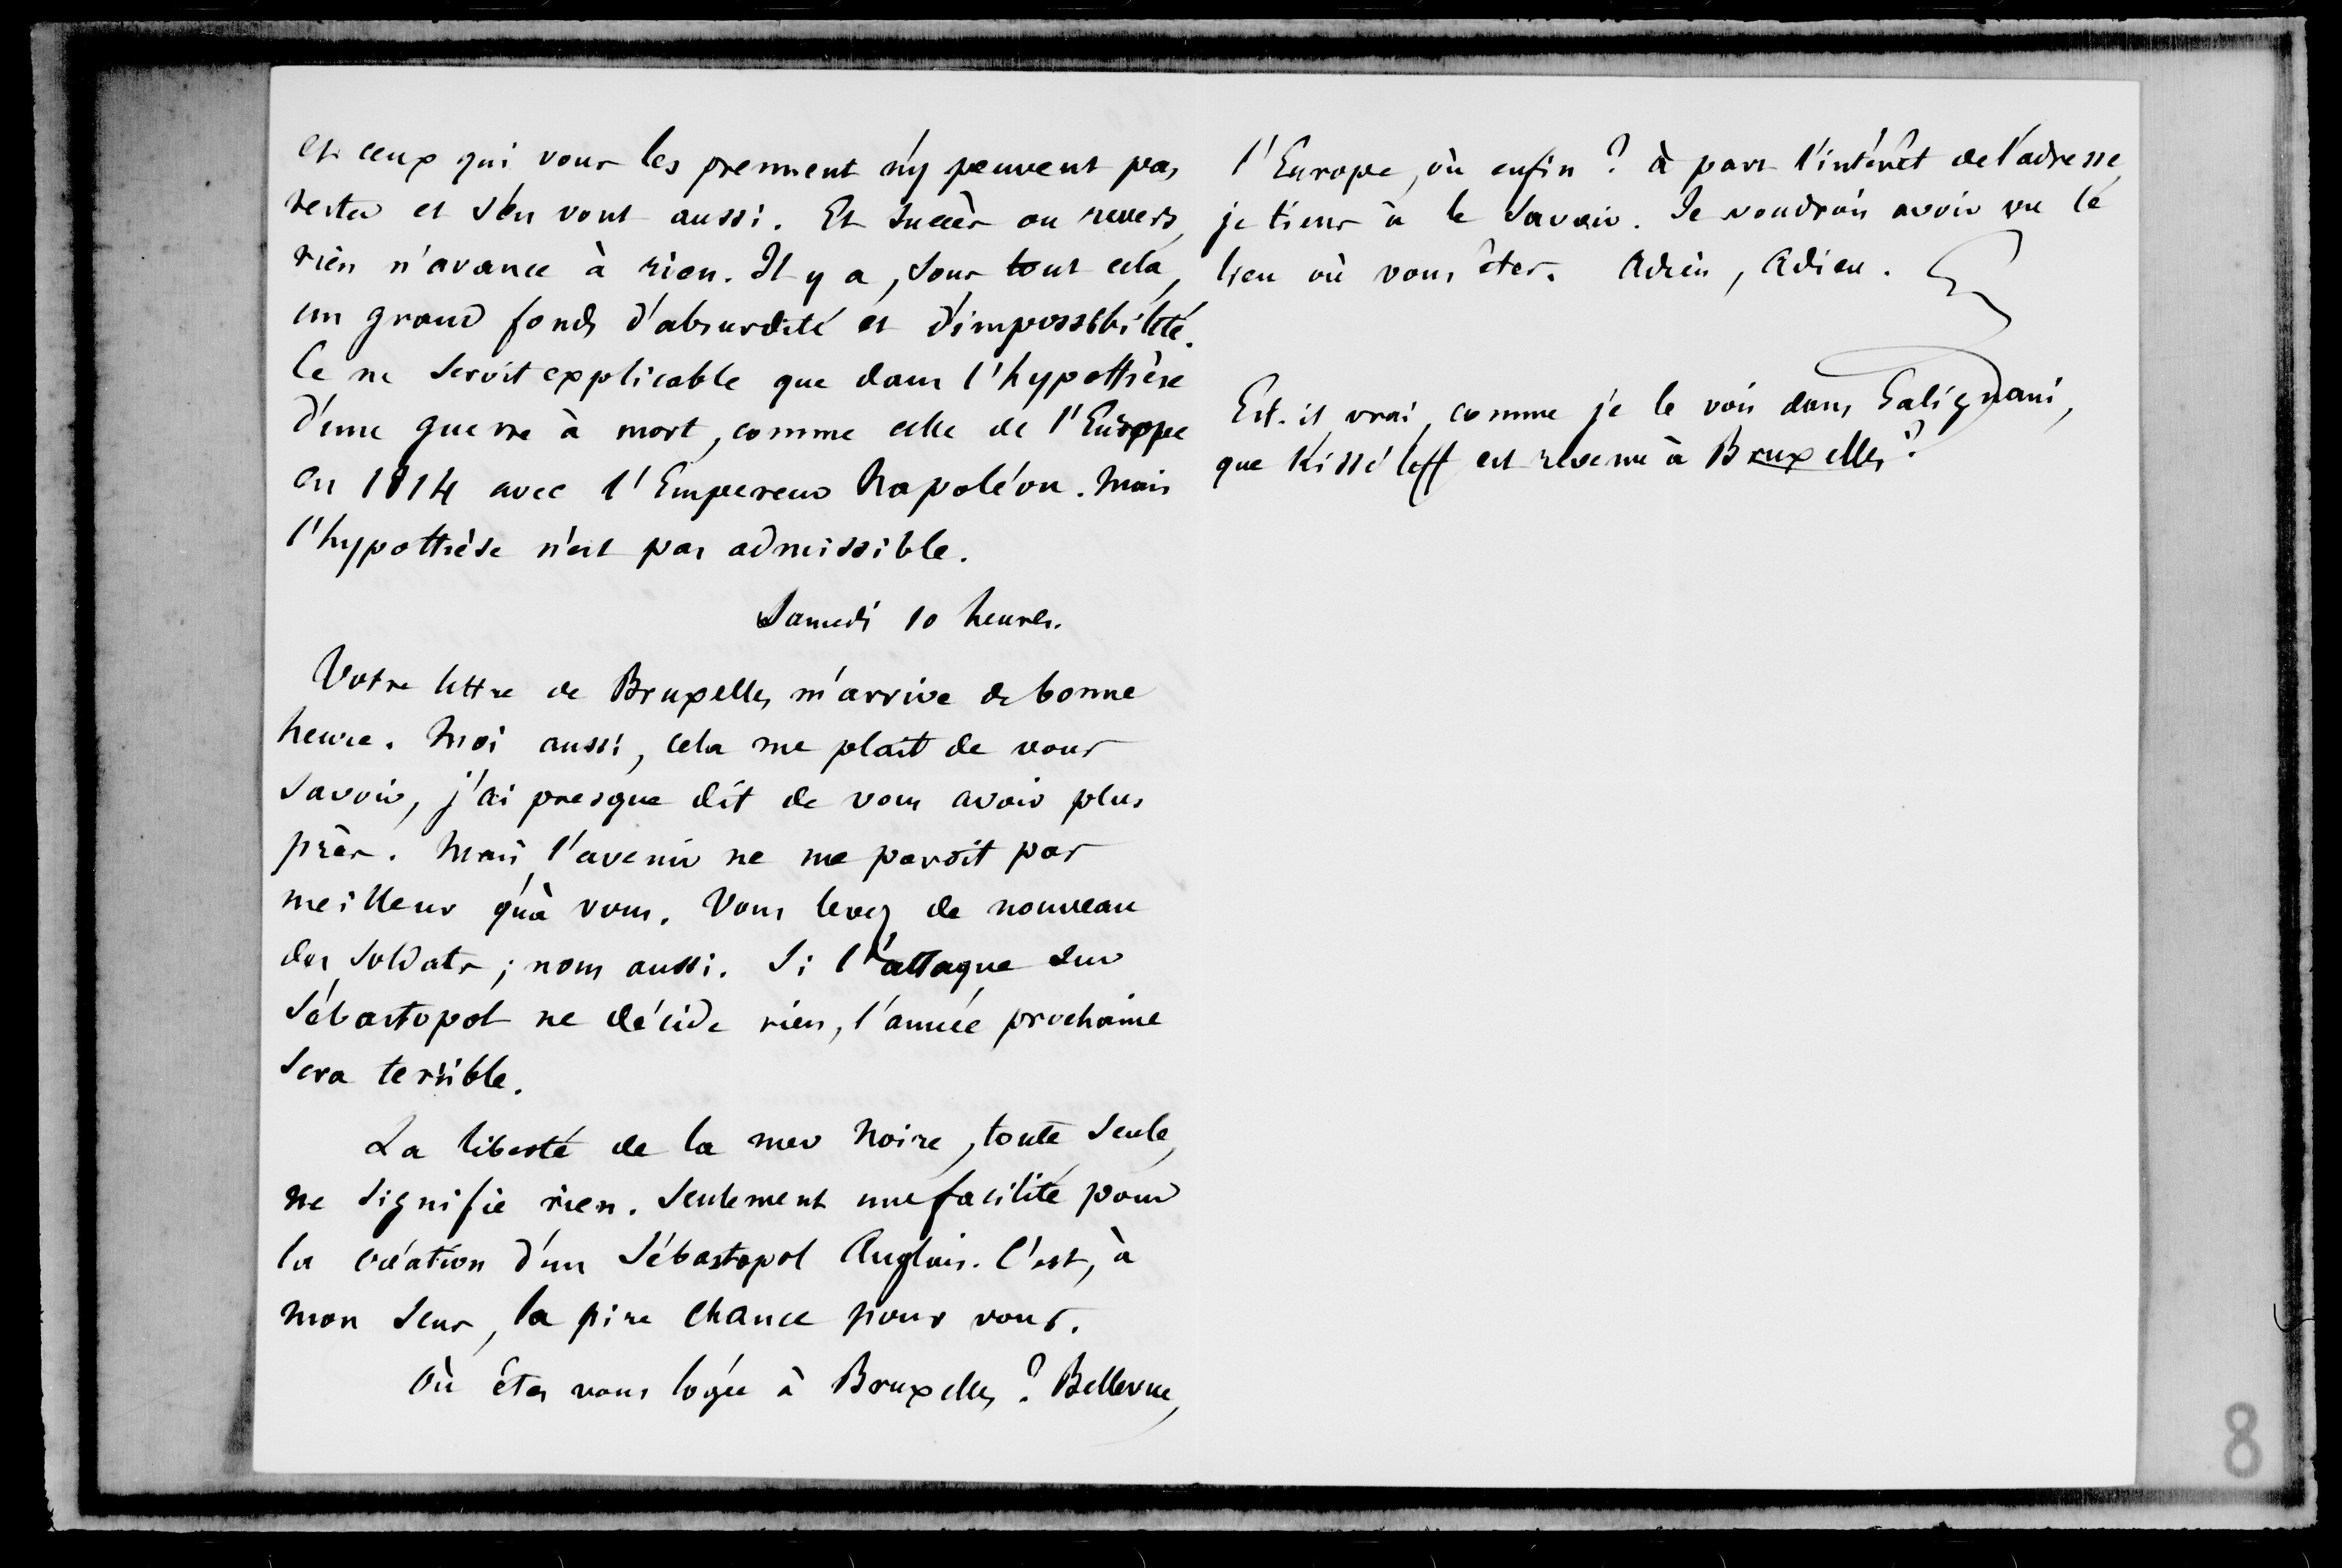 et ceux qui vous les prennent n'y peuvent pas
rester et s'en vont aussi. Et succès ou revers,
rien n'avance à rien. Il y a, sous tout cela,
un grand fonds d'absurdité et d'impossibilité.
Ce ne seroit explicable que dans l'hypothèse
d'une guerre à mort, comme celle de l'Europe
en 1814 avec l'Empereur Napoléon. Mais
l'hypothèse n'est pas admissible.
Samedi 10 heures.
Votre lettre de Bruxelles m'arrive de bonne
heure. Moi aussi, cela me plait de vous
savoir, j'ai presque dit de vous avoir plus
près. Mais l'avenir ne me paroit pas
meilleur qu'à vous. Vous levez de nouveau
des soldats ; nous aussi. Si l'attaque sur
Sébastopol ne décide rien, l'année prochaine
sera terrible.
La liberté de la mer Noire, toute seule,
ne signifie rien. Seulement une facilité pour
la création d'un Sébastopol Anglais. C'est, à
mon sens, la pire chance pour vous.
Où êtes vous logée à Bruxelles ? Bellevue,
l'Europe, où enfin ? à part l'intérêt de l'adresse,
je tiens à le savoir. Je voudrois avoir vu le
lieu où vous êtes. Adieu, Adieu. G
Est-il vrai, comme je le vois dans Galignani,
que Kisséleff est revenu à Bruxelles ?
8